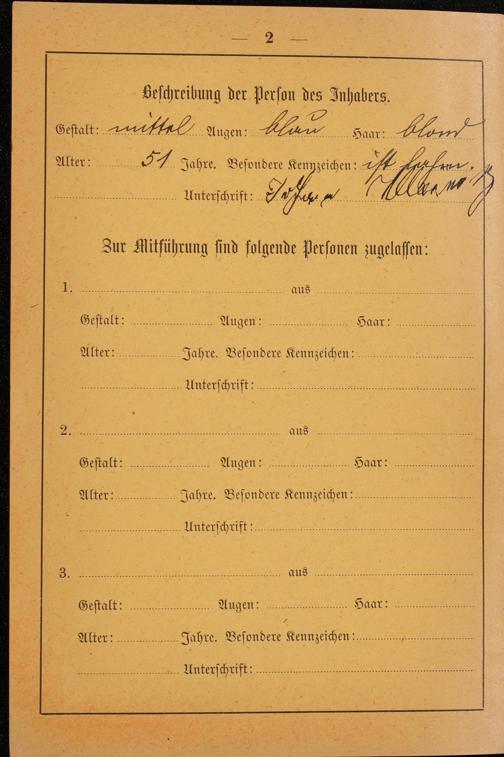 — 2 —
Beschreibung der Person des Inhabers.
Gestalt: mittel Augen: blau Haar: blond
Alter: 51 Jahre. Besondere Kennzeichen: ist
Unterschrift: Johan
Zur Mitführung sind folgende Personen zugelassen:
1. aus
Gestalt: Augen: Haar:
Alter: Jahre. Besondere Kennzeichen:
Unterschrift:
2. aus
Gestalt: Augen: Haar:
Alter: Jahre. Besondere Kennzeichen:
Unterschrift:
3. aus
Gestalt: Augen: Haar:
Alter: Jahre. Besondere Kennzeichen:
Unterschrift: